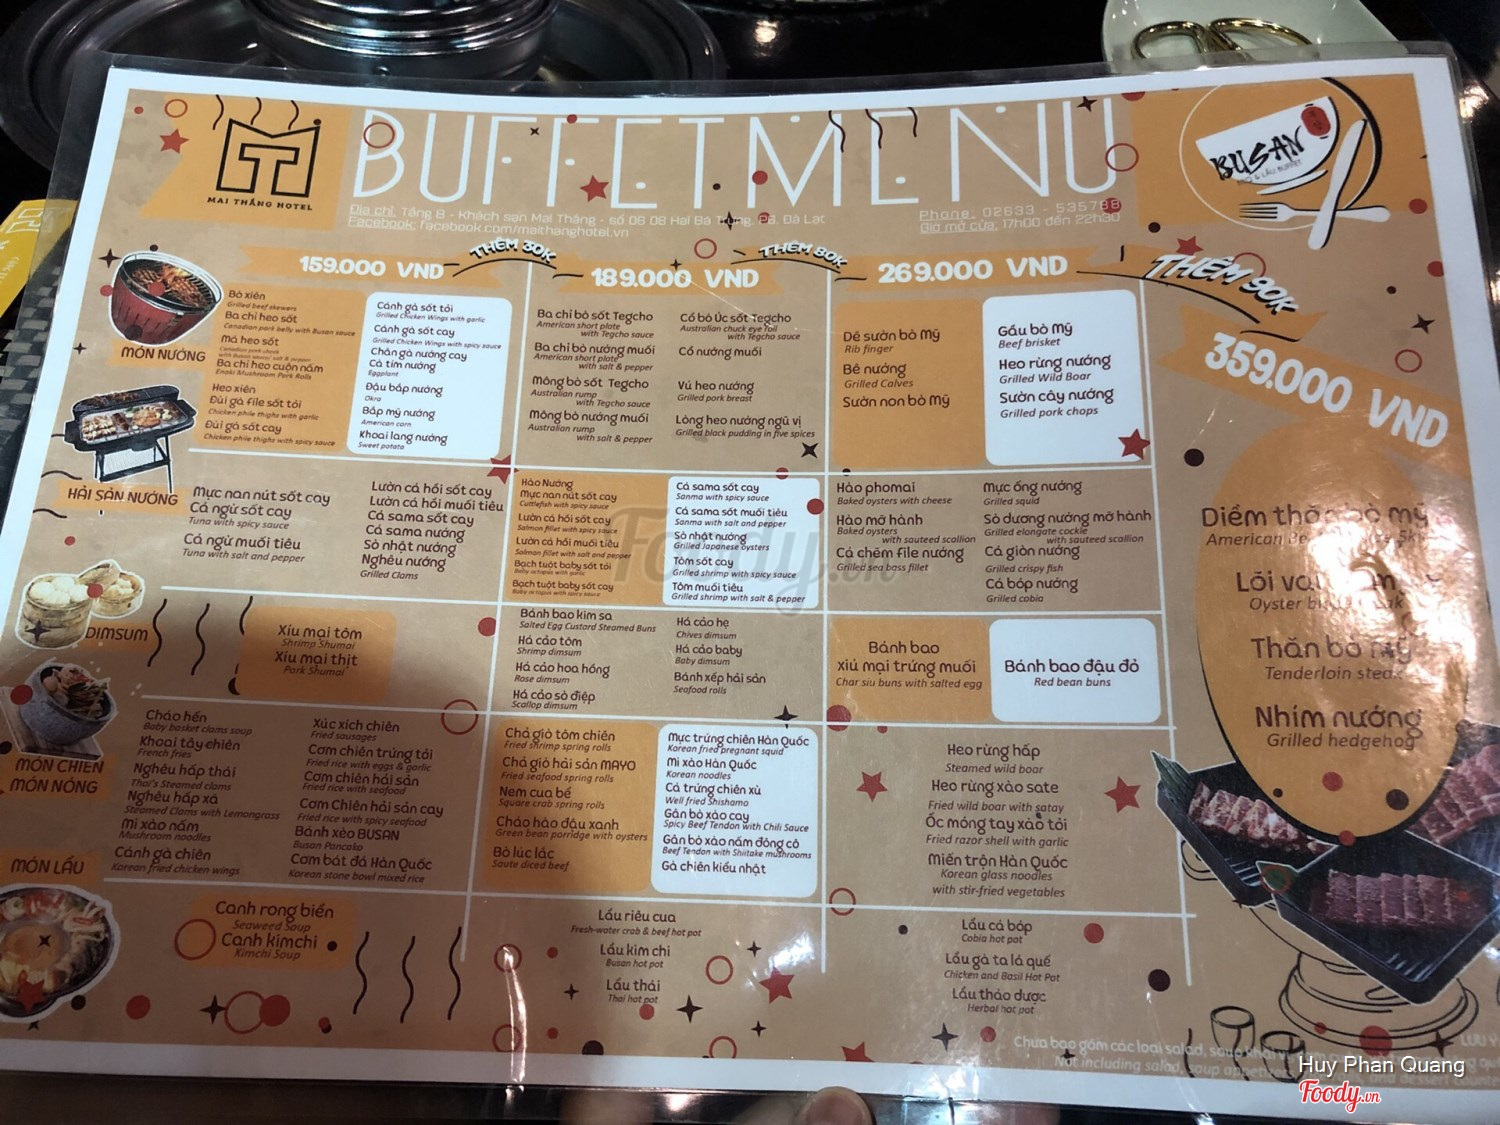 MAI THẮNG HOTEL
BUFFET MENU
Địa chỉ: Tầng B - Khách sạn Mai Thắng - số 06 08 Hai Bà Trưng, P6, Đà Lạt
Facebook: facebook.com/maithanghotel.vn
Phone: 02633 - 535788
Giờ mở cửa: 17h00 đến 22h30
BUSAN
THÊM 30K
THÊM 80K
THÊM 90K
159.000 VND
189.000 VND
269.000 VND
359.000 VND
MÓN NƯỚNG
Bò xiên
Grilled beef skewers
Ba chỉ heo sốt
Canadian pork belly with Busan sauce
Má heo sốt
Canadian pork cheek
with Busan sauce/ salt & pepper
Ba chỉ heo cuộn nấm
Enoki Mushroom Pork Rolls
Heo xiên
Đùi gà file sốt tỏi
Chicken phile thighs with garlic
Đùi gà sốt cay
Chicken phile thighs with spicy sauce
Cánh gà sốt tỏi
Grilled Chicken Wings with garlic
Cánh gà sốt cay
Grilled Chicken Wings with spicy sauce
Chân gà nướng cay
Cà tím nướng
Eggplant
Đậu bắp nướng
Okra
Bắp mỹ nướng
American corn
Khoai lang nướng
Sweet potato
Ba chỉ bò sốt Tegcho
American short plate
with Tegcho sauce
Ba chỉ bò nướng muối
American short plate
with salt & pepper
Mông bò sốt Tegcho
Australian rump
with Tegcho sauce
Mông bò nướng muối
Australian rump
with salt & pepper
Cổ bò Úc sốt Tegcho
Australian chuck eye roll
with Tegcho sauce
Cổ nướng muối
Vú heo nướng
Grilled pork breast
Lòng heo nướng ngũ vị
Grilled black pudding in five spices
Dẻ sườn bò Mỹ
Rib finger
Bê nướng
Grilled Calves
Sườn non bò Mỹ
Gầu bò Mỹ
Beef brisket
Heo rừng nướng
Grilled Wild Boar
Sườn cây nướng
Grilled pork chops
HẢI SẢN NƯỚNG
Mực nan nút sốt cay
Cá ngừ sốt cay
Tuna with spicy sauce
Cá ngừ muối tiêu
Tuna with salt and pepper
Lườn cá hồi sốt cay
Lườn cá hồi muối tiêu
Cá sama sốt cay
Cá sama nướng
Sò nhật nướng
Nghêu nướng
Grilled Clams
Hào Nướng
Mực nan nút sốt cay
Cuttlefish with spicy sauce
Lườn cá hồi sốt cay
Salmon fillet with spicy sauce
Lườn cá hồi muối tiêu
Salmon fillet with salt and pepper
Bạch tuột baby sốt tỏi
Baby octopus with garlic
Bạch tuột baby sốt cay
Baby octopus with spicy sauce
Cá sama sốt cay
Sanma with spicy sauce
Cá sama sốt muối tiêu
Sanma with salt and pepper
Sò nhật nướng
Grilled Japanese oysters
Tôm sốt cay
Grilled shrimp with spicy sauce
Tôm muối tiêu
Grilled shrimp with salt & pepper
Hào phomai
Baked oysters with cheese
Hào mỡ hành
Baked oysters
with sauteed scallion
Cá chẽm file nướng
Grilled sea bass fillet
Mực ống nướng
Grilled squid
Sò dương nướng mỡ hành
Grilled elongate cockle
with sauteed scallion
Cá giòn nướng
Grilled crispy fish
Cá bóp nướng
Grilled cobia
DIMSUM
Xíu mại tôm
Shrimp Shumai
Xíu mại thịt
Pork Shumai
Bánh bao kim sa
Salted Egg Custard Steamed Buns
Há cảo tôm
Shrimp dimsum
Há cảo hoa hồng
Rose dimsum
Há cảo sò điệp
Scallop dimsum
Há cảo hẹ
Chives dimsum
Há cảo baby
Baby dimsum
Bánh xếp hải sản
Seafood rolls
Bánh bao
xiú mại trứng muối
Char siu buns with salted egg
Bánh bao đậu đỏ
Red bean buns
MÓN CHIÊN
MÓN NÓNG
Cháo hến
Baby basket clams soup
Khoai tây chiên
French fries
Nghêu hấp thái
Thai's Steamed clams
Nghêu hấp xả
Steamed Clams with Lemongrass
Mì xào nấm
Mushroom noodles
Cánh gà chiên
Korean fried chicken wings
Xúc xích chiên
Fried sausages
Cơm chiên trứng tỏi
Fried rice with eggs & garlic
Cơm chiên hải sản
Fried rice with seafood
Cơm Chiên hải sản cay
Fried rice with spicy seafood
Bánh xèo BUSAN
Busan Pancake
Cơm bát đá Hàn Quốc
Korean stone bowl mixed rice
Chả giò tôm chiên
Fried shrimp spring rolls
Chả giò hải sản MAYO
Fried seafood spring rolls
Nem cua bể
Square crab spring rolls
Cháo hào đậu xanh
Green bean porridge with oysters
Bò lúc lắc
Saute diced beef
Mực trứng chiên Hàn Quốc
Korean fried pregnant squid
Mì xào Hàn Quốc
Korean noodles
Cá trứng chiên xù
Well fried Shishamo
Gân bò xào cay
Spicy Beef Tendon with Chili Sauce
Gân bò xào nấm đông cô
Beef Tendon with Shiitake mushrooms
Gà chiên kiểu nhật
Heo rừng hấp
Steamed wild boar
Heo rừng xào sate
Fried wild boar with satay
Ốc móng tay xào tỏi
Fried razor shell with garlic
Miến trộn Hàn Quốc
Korean glass noodles
with stir-fried vegetables
MÓN LẨU
Canh rong biển
Seaweed Soup
Canh kimchi
Kimchi Soup
Lẩu riêu cua
Fresh-water crab & beef hot pot
Lẩu kim chi
Busan hot pot
Lẩu thái
Thai hot pot
Lẩu cá bóp
Cobia hot pot
Lẩu gà ta lá quế
Chicken and Basil Hot Pot
Lẩu thảo dược
Herbal hot pot
Diềm thăn bò mỹ
American
Lõi vai
Oyster
Thăn bò mỹ
Tenderloin steak
Nhím nướng
Grilled hedgehog
LƯU Ý
Chưa bao gồm các loại salad,
Not including salad, soup
Foody.vn
Huy Phan Quang
Foody.vn